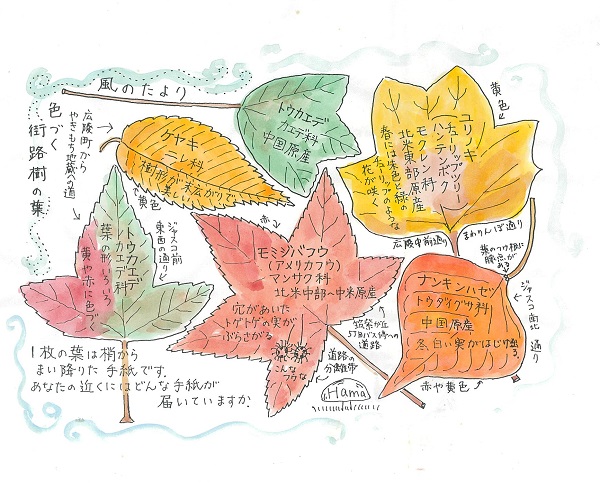 風のたより
色づく
街路樹の葉
広陵町から
やきもち地蔵への道
トウカエデ
カエデ科
中国原産
ケヤキ
ニレ科
樹形が末広がりで
美しい
黄色
ユリノキ
チューリップツリー
ハンテンボク
モクレン科
北米東部原産
春には朱色と緑の
チューリップのような
花が咲く
黄色
広陵中前通り
まわりんぼ通り
トウカエデ
カエデ科
葉の形いろいろ
黄や赤に色づく
ジャスコ前
東西の通り
赤
モミジバフウ
(アメリカフウ)
マンサク科
北米中部〜中米原産
穴があいた
トゲトゲの実が
ぶらさがる
こんな
フウな
道路の
分離帯
道路
葉のつけ根に
腺点が
ある
ナンキンハゼ
トウダイグサ科
中国原産
冬白い実がはじける
赤や黄色
ジャスコ西北
通り
1枚の葉は梢から
まい降りた手紙です.
あなたの近くにはどんな手紙が
届いていますか.
Hama